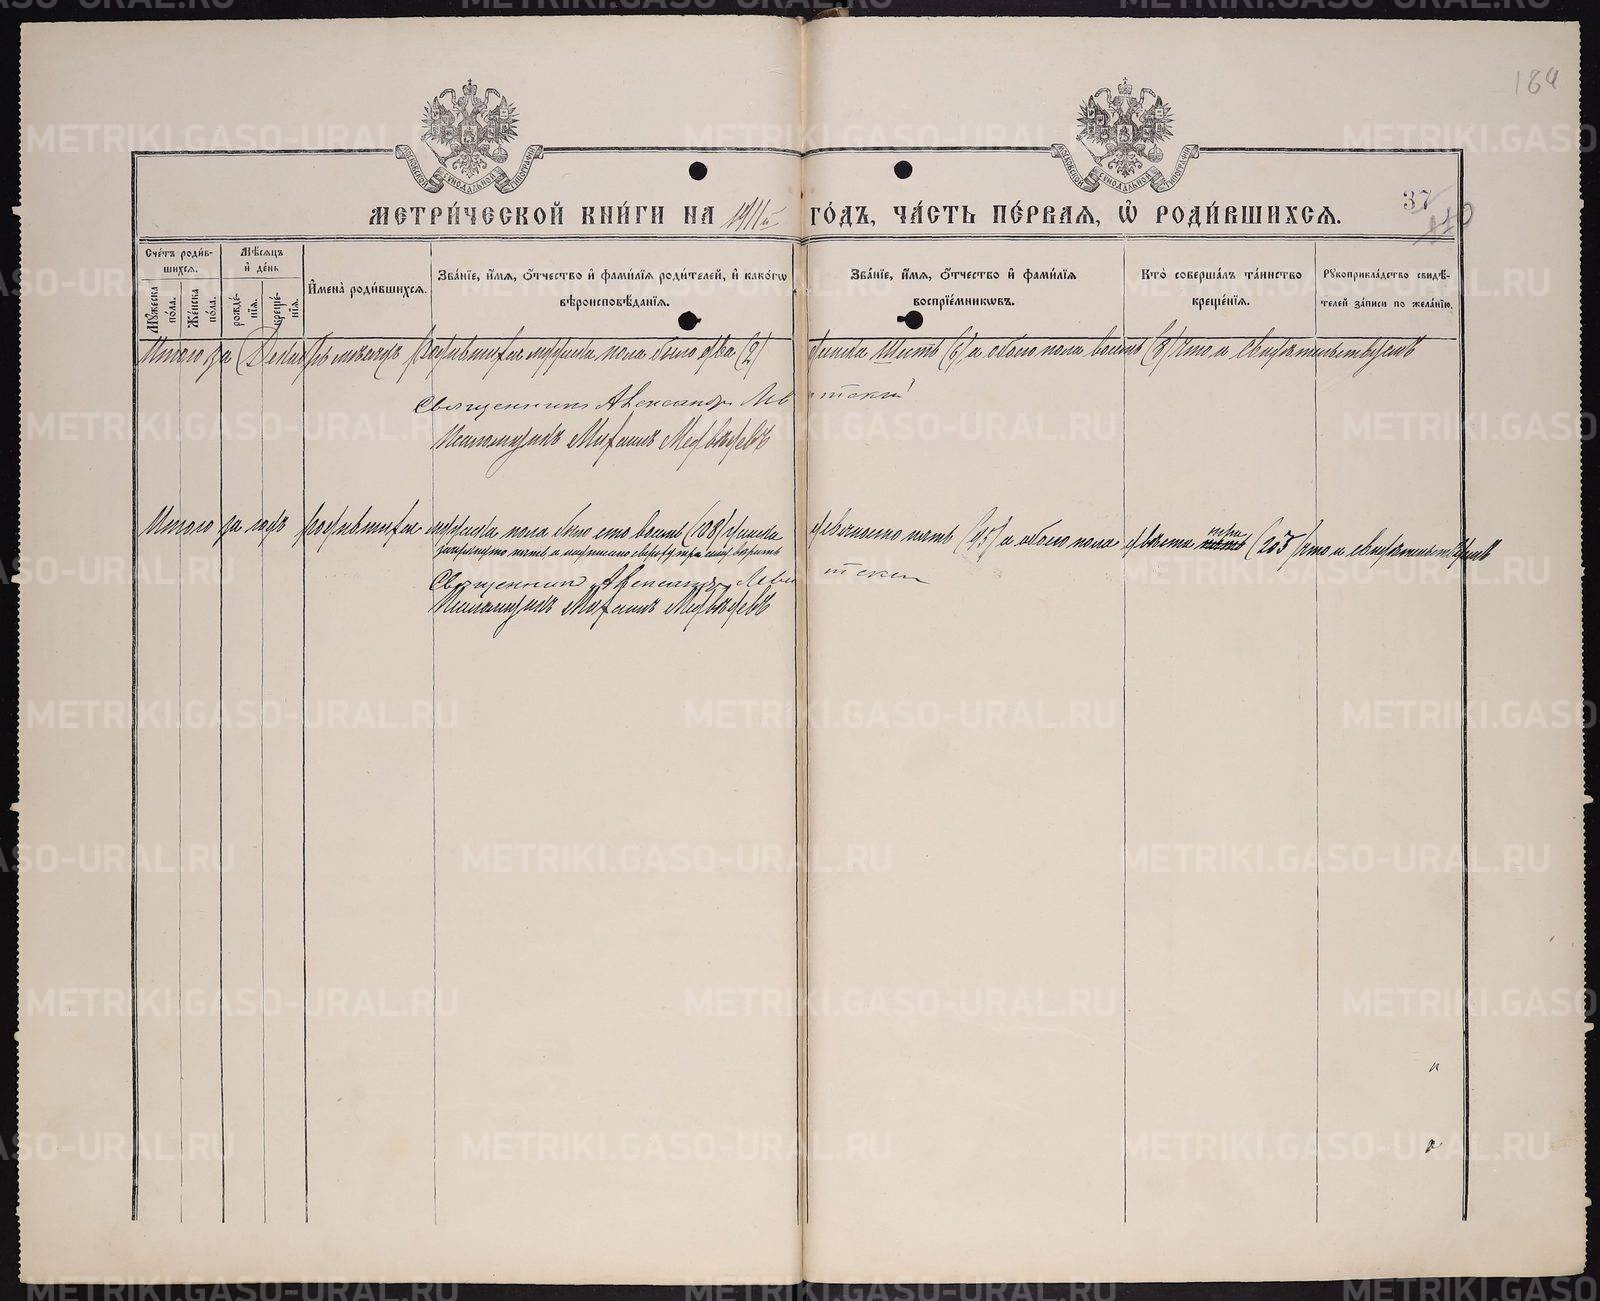 184
МОСКОВСКОЙ СѴНОДАЛЬНОЙ ТИПОГРАФІИ
МОСКОВСКОЙ СѴНОДАЛЬНОЙ ТИПОГРАФІИ
МЕТРИ́ЧЕСКОЙ КНИ́ГИ НА 1911й ГО́ДЪ, ЧА́СТЬ ПЕ́РВАЯ, Ѡ҆ РОДИ́ВШИХСѦ.
37
Сче́тъ роди́вшихсѧ.
Мꙋ́жеска по́ла.
Же́нска по́ла.
Мѣ́сѧцъ и҆ де́нь
рожде́нїѧ.
креще́нїѧ.
И҆мена̀ роди́вшихсѧ.
Зва́нїе, и҆́мѧ, ѻ҆́тчество и҆ фами́лїѧ роди́телей, и҆ како́гѡ вѣроисповѣ́данїѧ.
Зва́нїе, и҆́мѧ, ѻ҆́тчество и҆ фами́лїѧ воспрїе́мникѡвъ.
Кто̀ соверша́лъ та́инство креще́нїѧ.
Рꙋкоприкла́дство свидѣ́телей за́писи по жела́нїю.
Итого за Декабрь мѣсяцъ родившихся мужска пола было два (2) женска шесть (6) а обоего пола восемь (8) что и свидѣтельствуемъ
Священникъ Александръ Левитскій
Псаломщикъ Михаилъ Медвѣдевъ
Итого за годъ родившихся мужска пола было сто восемь (108) женска девяносто пять (95) а обоего пола двѣсти пять три (203) что и свидѣтельствуемъ
зачеркнуто пять и написано сверху три
Священникъ Александръ Левитскій
Псаломщикъ Михаилъ Медвѣдевъ
METRIKI.GASO-URAL.RU